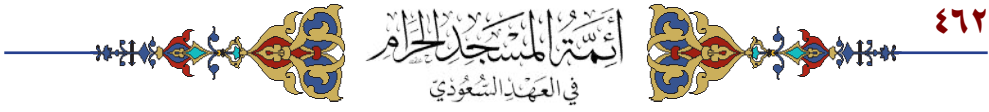 ٤٦٢
أئمة المسجد الحرام
في العهد السعودي